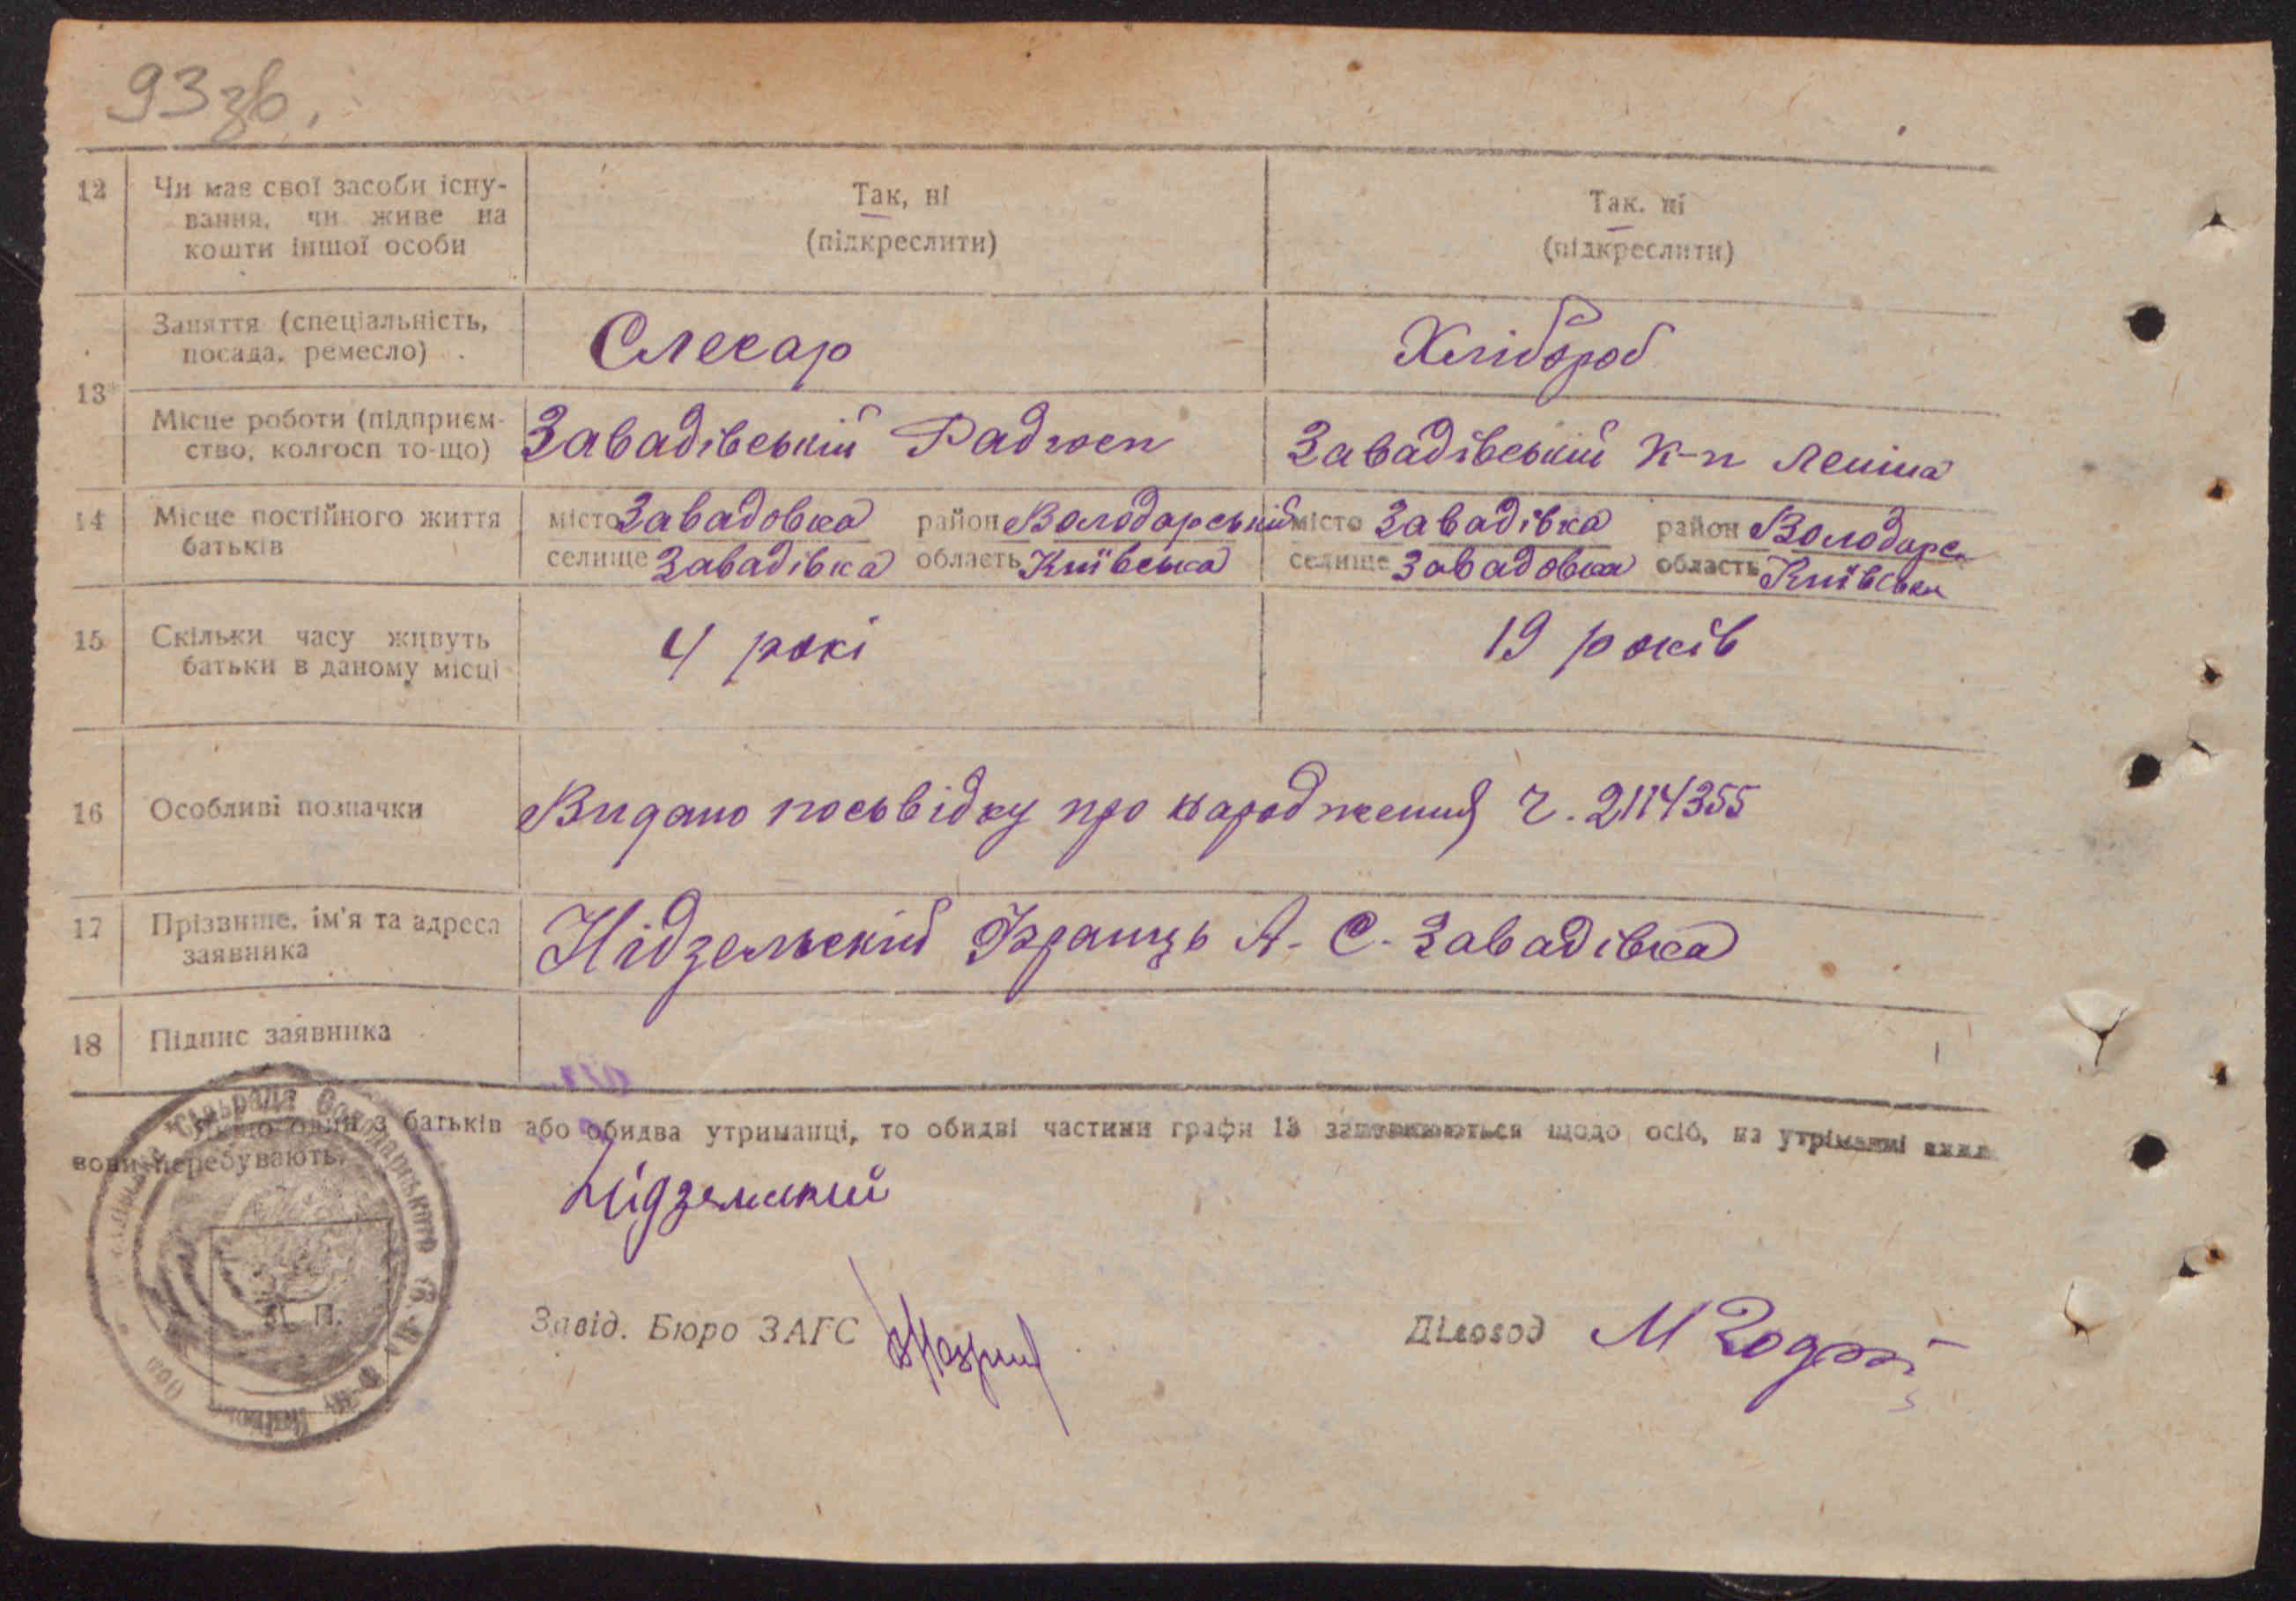 93 зв.
12 Чи має свої засоби існу-
вання, чи живе на
кошти іншої особи
Так, ні
(підкреслити)
Так. ні
(підкреслити)
13
Заняття (спеціальність,
посада, ремесло)
Слесар
Хлібороб
Місце роботи (підприєм-
ство, колгосп то-що)
Завадівський Радгосп
Завадівський К-п Леніна
14 Місце постійного життя
батьків
місто Завадовка район Володарський
селище Завадівка область Київська
місто Завадівка район Володарс
селище Завадовка область Київськ
15 Скільки часу живуть
батьки в даному місці
4 рокі
19 років
16 Особливі позначки
Видано посьвідку про народження ч. 2114355
17 Прізвище, ім'я та адреса
заявника
Нідзельский Франць А. С. Завадівка
18 Підпис заявника
Якщо один з батьків або обидва утриманці, то обидві частини графи 13 заповнюються щодо осіб, на утріманні яких
вони перебувають.
Нідзельский
М. П.
Завід. Бюро ЗАГС
Діловод